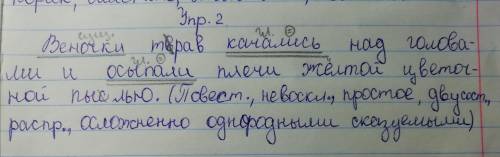 Упр. 2
сущ. гл. =
Веночки трав качались над голова-
гл. =
ми и осыпали плечи жёлтой цветоч-
ной пыслью. (Повест., невоскл., простое, двусост.,
распр., осложненно однородными сказуемыми)